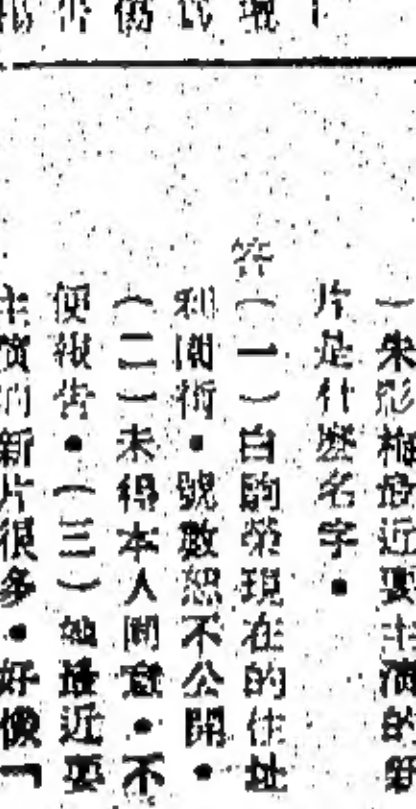 ）朱影梅最近要主演的新
片是什麼名字．
答（一）白駒榮現在的住址
利園街．號數恕不公開．
（二）未得本人同意．不
便報告．（三）她最近要
主演的新片很多．好像「